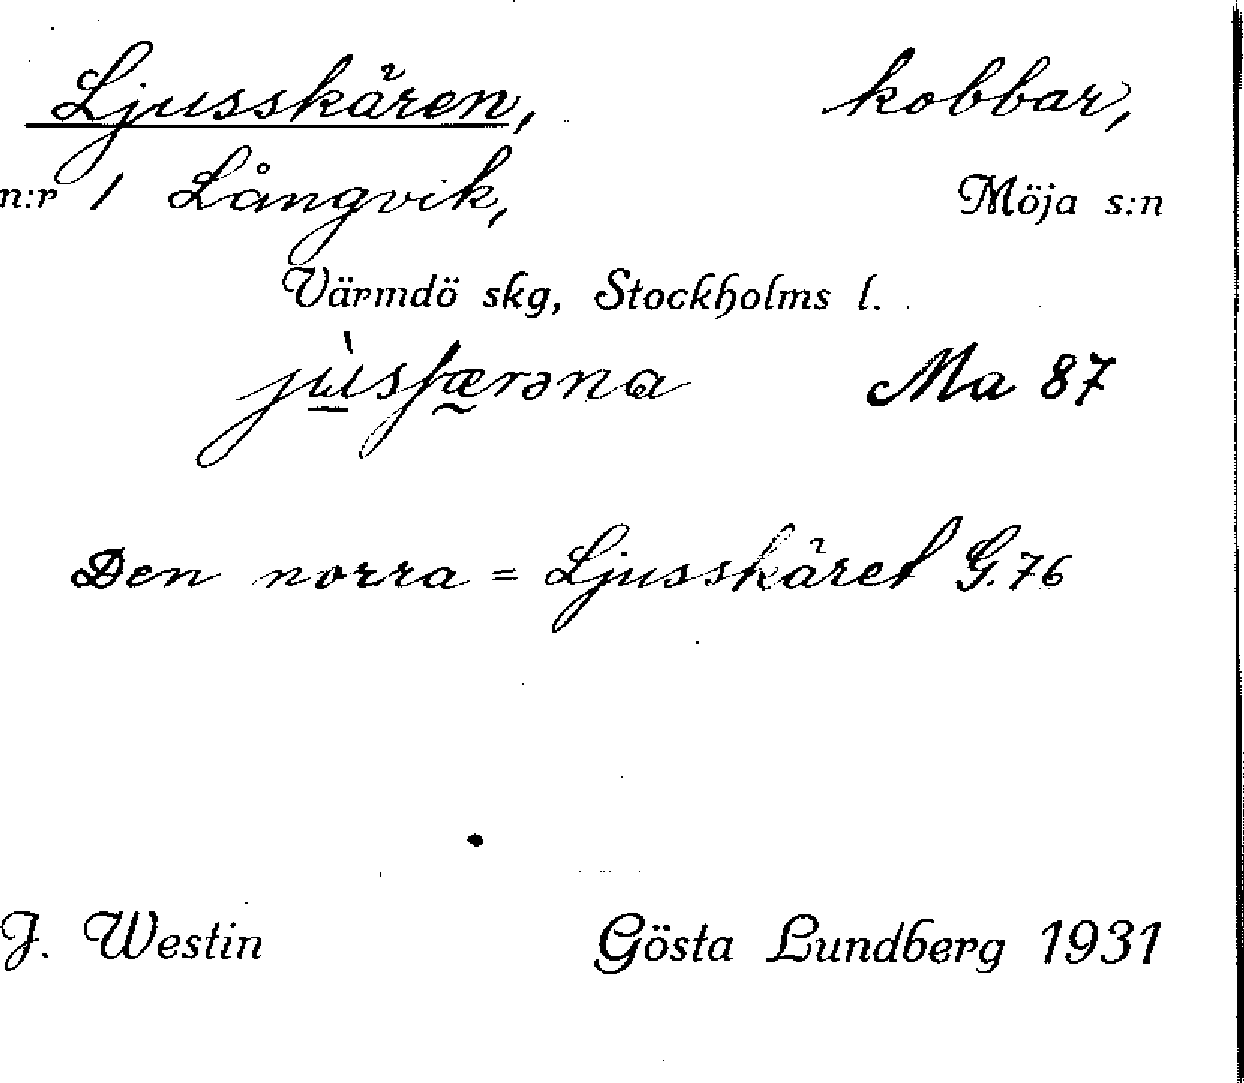 Ljusskären, kobbar,
n:r 1 Långvik, Möja s:n
Värmdö skg, Stockholms l.
Ma 87
Den norra = Ljusskäret G. 76
J. Westin Gösta Lundberg 1931